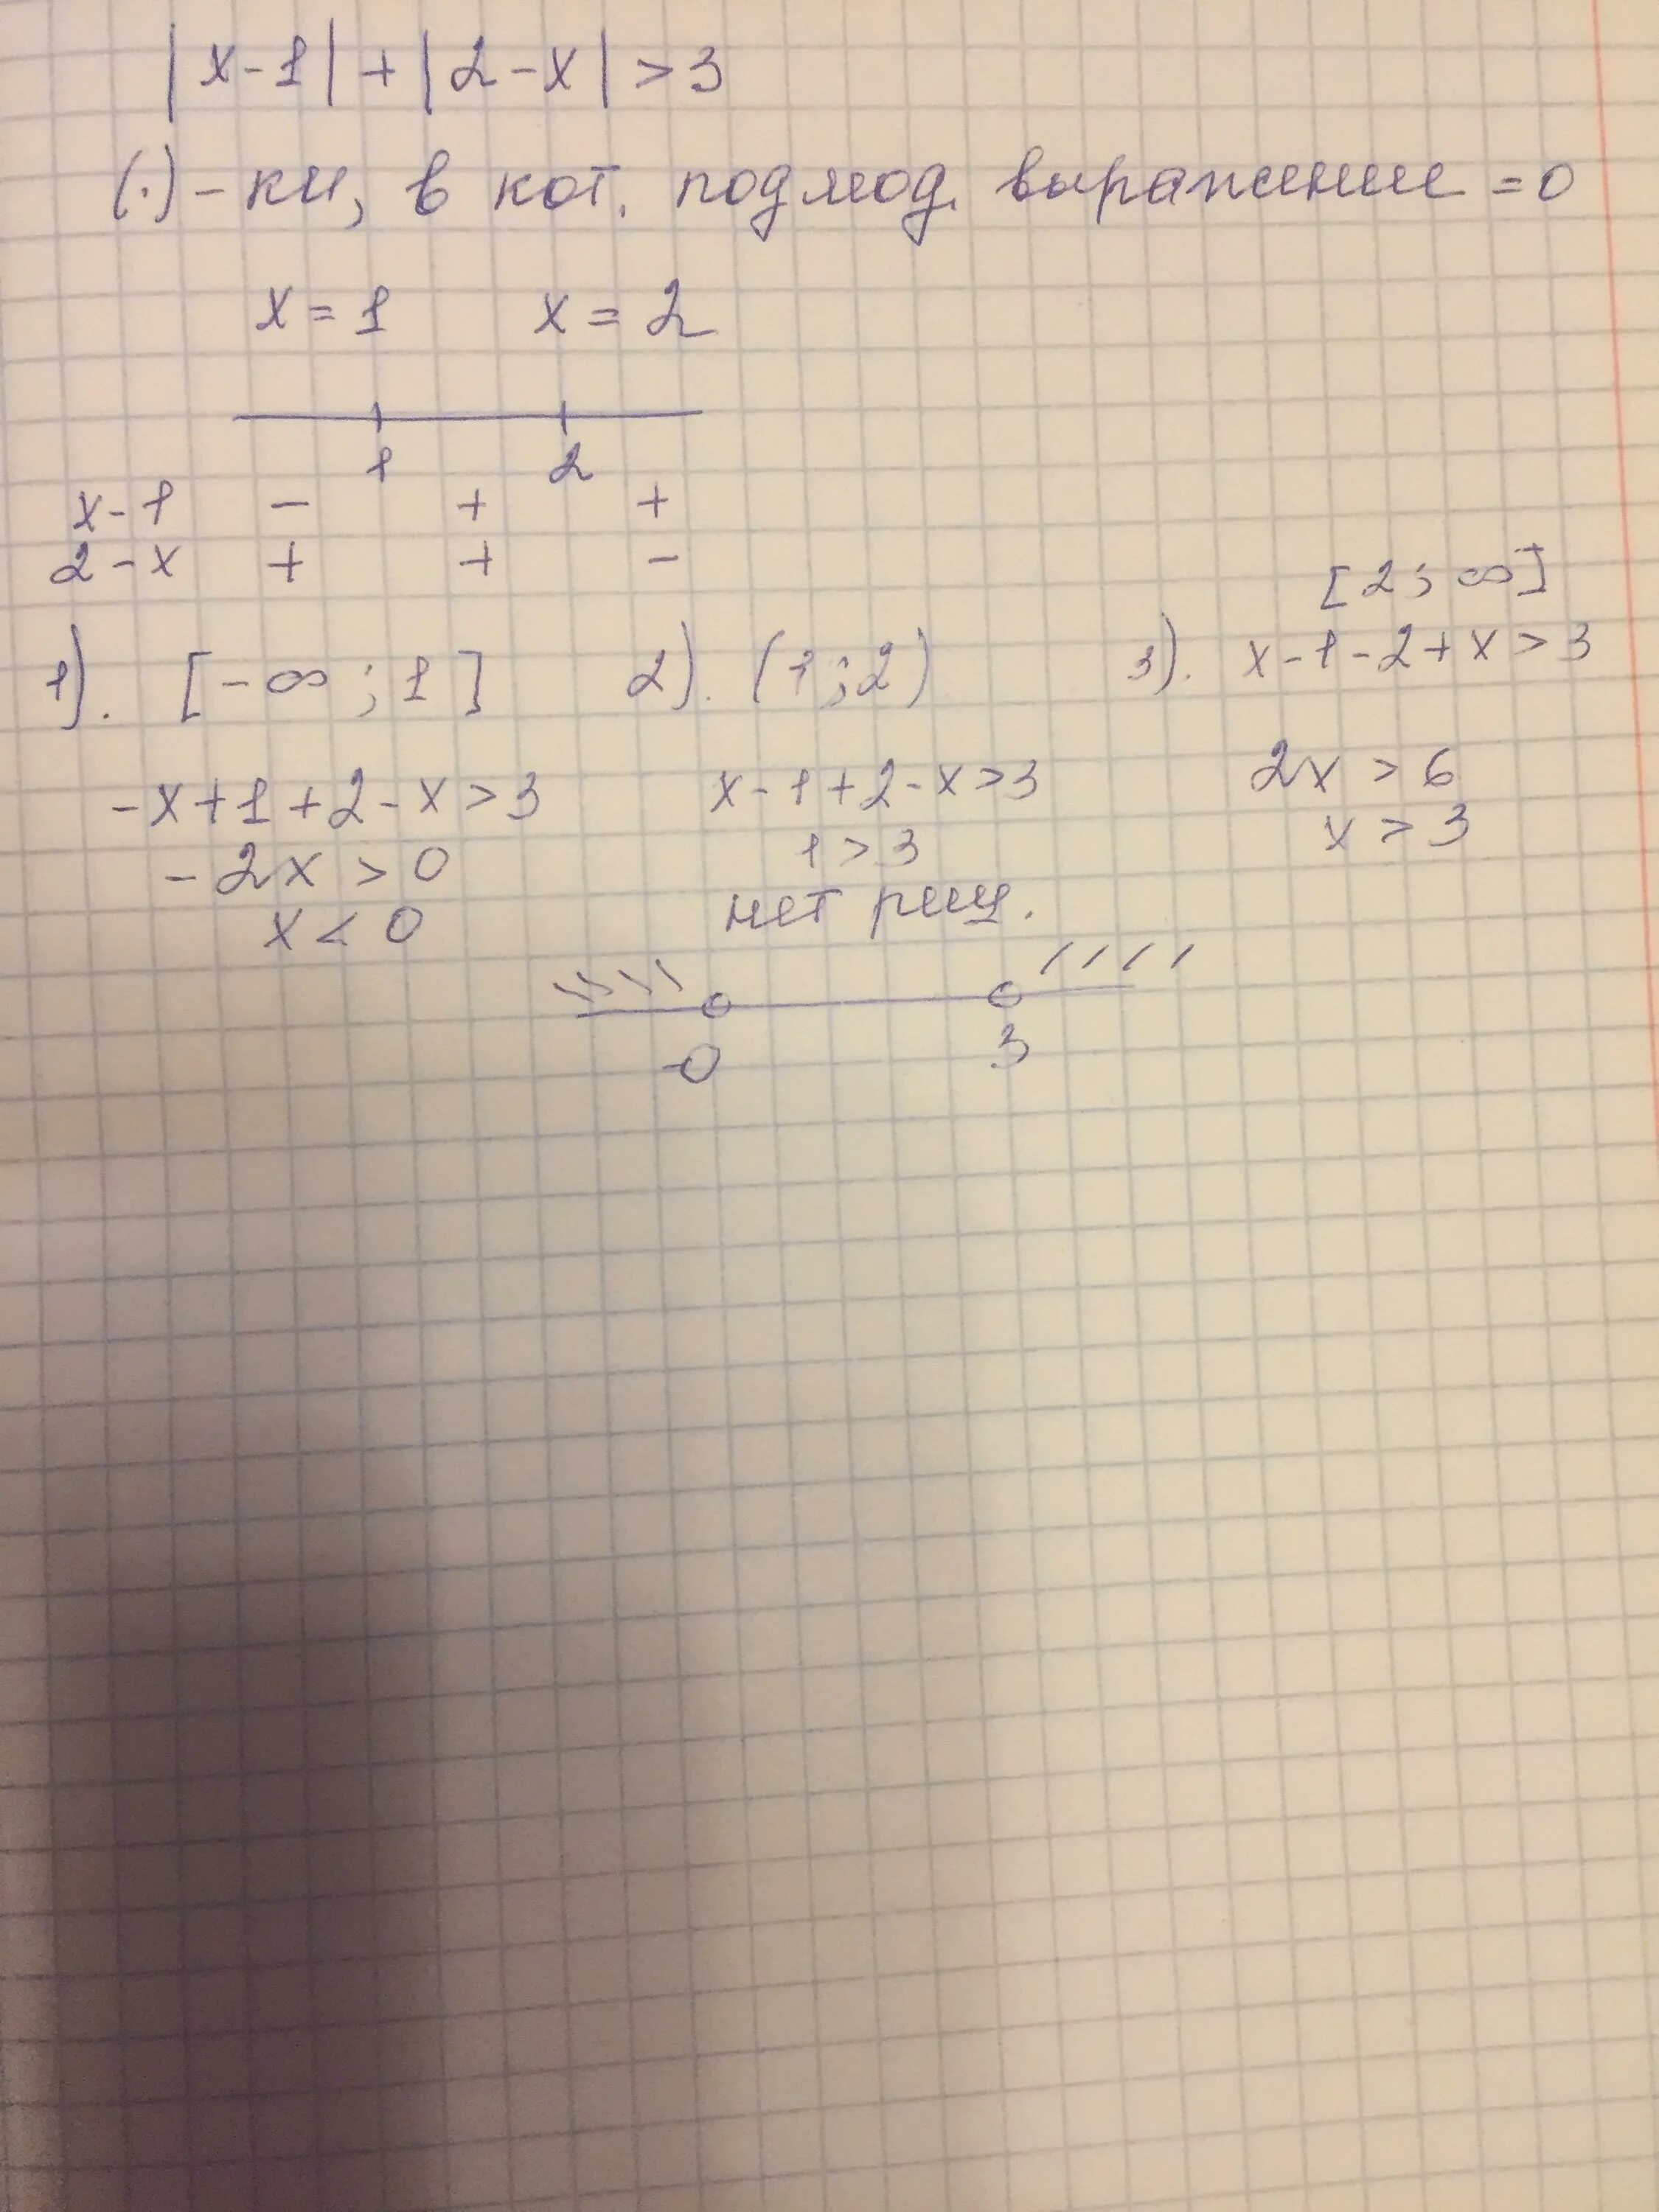 |x-1|+|2-x|>3
(·)-ки, в кот. подмод. выражение =0
x=1 x=2
1 2
x-1 - + +
2-x + + -
1). [-∞;1]
-x+1+2-x>3
-2x>0
x<0
2). (1;2)
x-1+2-x>3
1>3
нет реш.
[2;∞]
3). x-1-2+x>3
2x>6
x>3
0 3